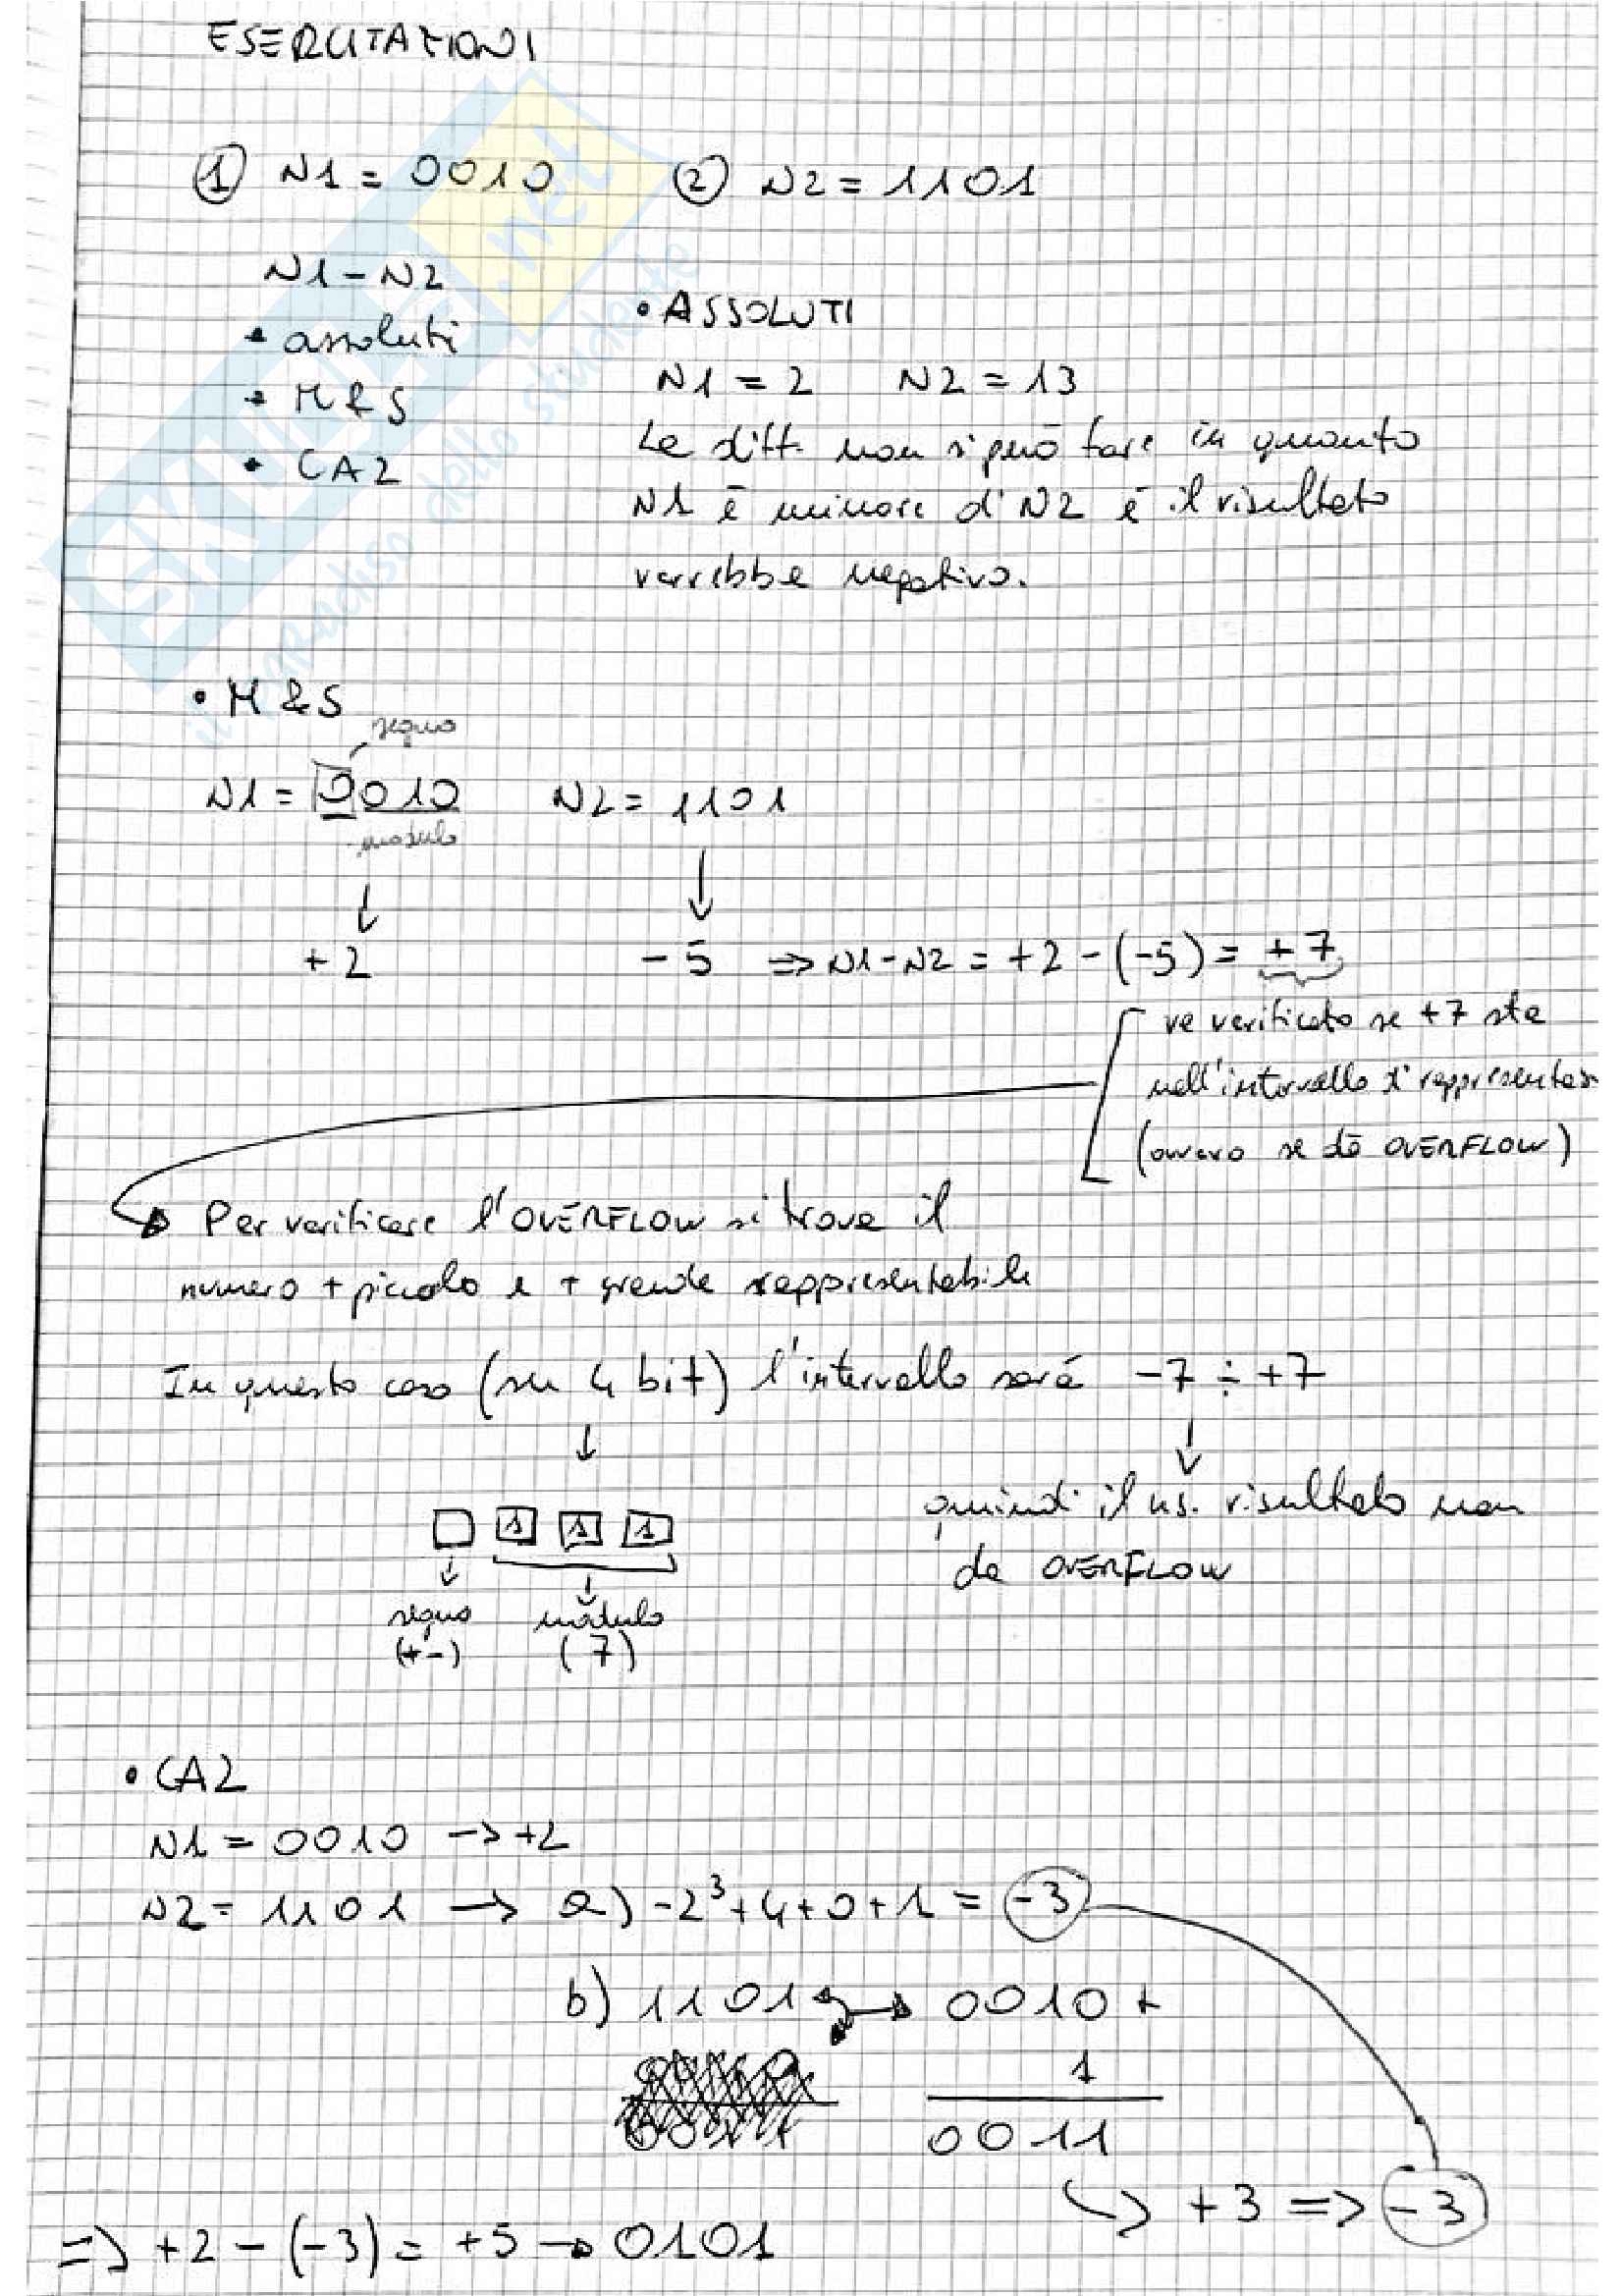 ESERCITAZIONI
① N1 = 0010 ② N2 = 1101
N1 - N2
• assoluti
• M&S
• CA2
• ASSOLUTI
N1 = 2 N2 = 13
La diff. non si può fare in quanto
N1 è minore di N2 e il risultato
verrebbe negativo.
• M&S
segno
N1 = 0010 N2 = 1101
modulo
↓ ↓
+2 -5 => N1-N2 = +2-(-5) = +7
va verificato se +7 sta
nell'intervallo di rappresentaz
(ovvero se dà OVERFLOW)
Per verificare l'OVERFLOW si trova il
numero + piccolo e + grande rappresentabile
In questo caso (su 4 bit) l'intervallo sarà -7 ÷ +7
↓ ↓
1 1 1
segno modulo
(+-) (7)
quindi il ns. risultato non
da OVERFLOW
• CA2
N1 = 0010 -> +2
N2 = 1101 -> a) -2³+4+0+1 = -3
b) 1101 -> 0010 +
1
0011
+3 => -3
=> +2 - (-3) = +5 -> 0101
SKUOLA.net
il paradiso dello studente